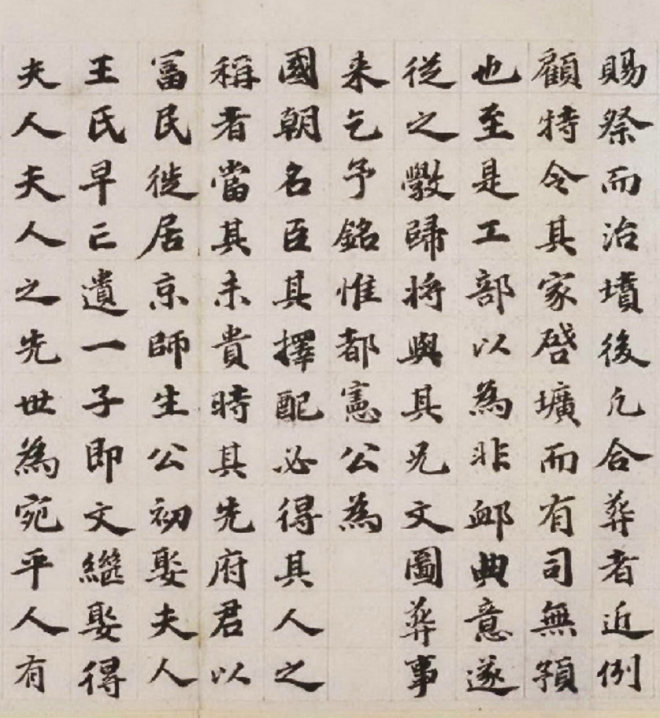 賜祭而治墳後凡合葬者近例
顧特令其家啓壙而有司無預
也至是工部以為非卹典意遂
從之斆歸將與其兄文圖葬事
来乞予銘惟都憲公為
國朝名臣其擇配必得其人之
稱者當其未貴時其先府君以
富民徙居京師生公初娶夫人
王氏早亡遺一子即文繼娶得
夫人夫人之先世為宛平人有